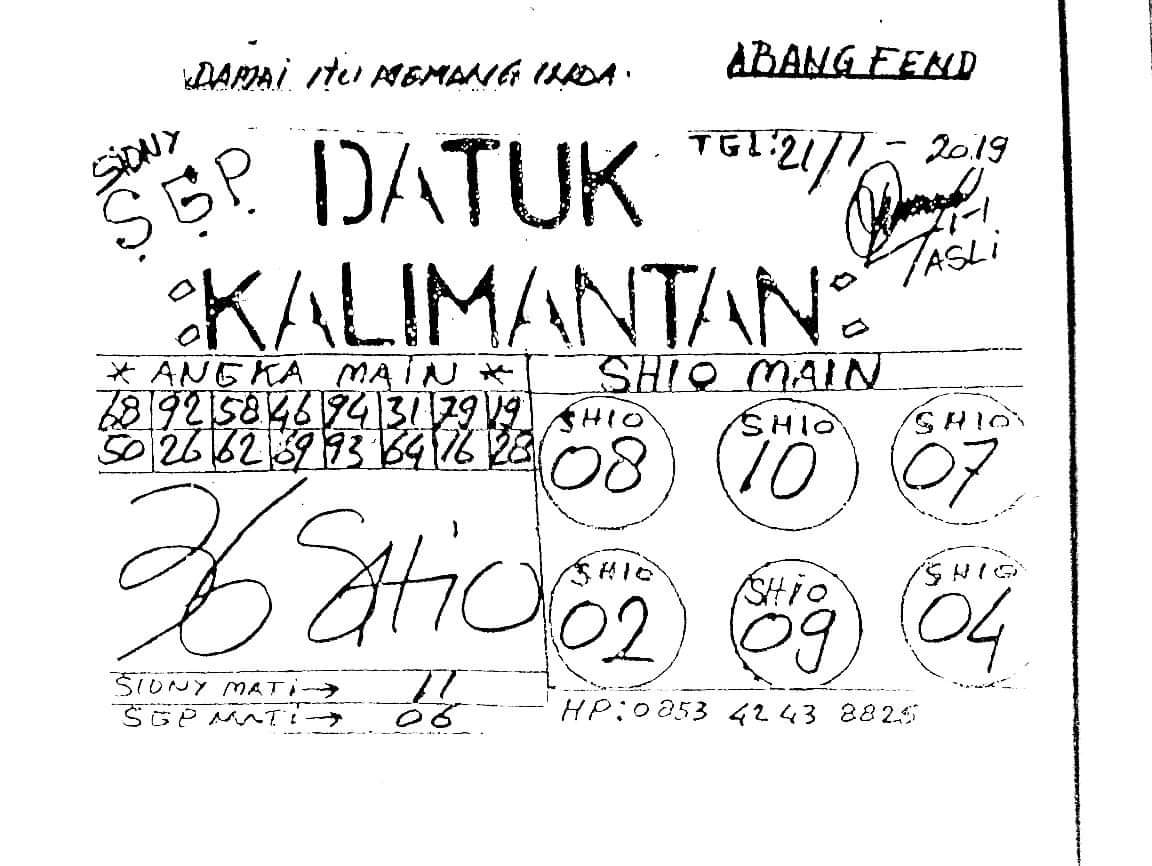 DAMAI ITU MEMANG INDA.
ABANG FEND
SIDNY
S.G.P.
DATUK
TGL:21/7-2019
ASLi
:KALIMANTAN:
* ANGKA MAIN *
SHIO MAIN
68 92 58 46 94 31 79 19
50 26 62 69 93 64 16 28
SHIO
08
SHIO
10
SHIO
07
SHIO
02
SHIO
09
SHIO
04
SIDNY MATI→ 11
SGP MATI→ 06
HP:0853 4243 8825